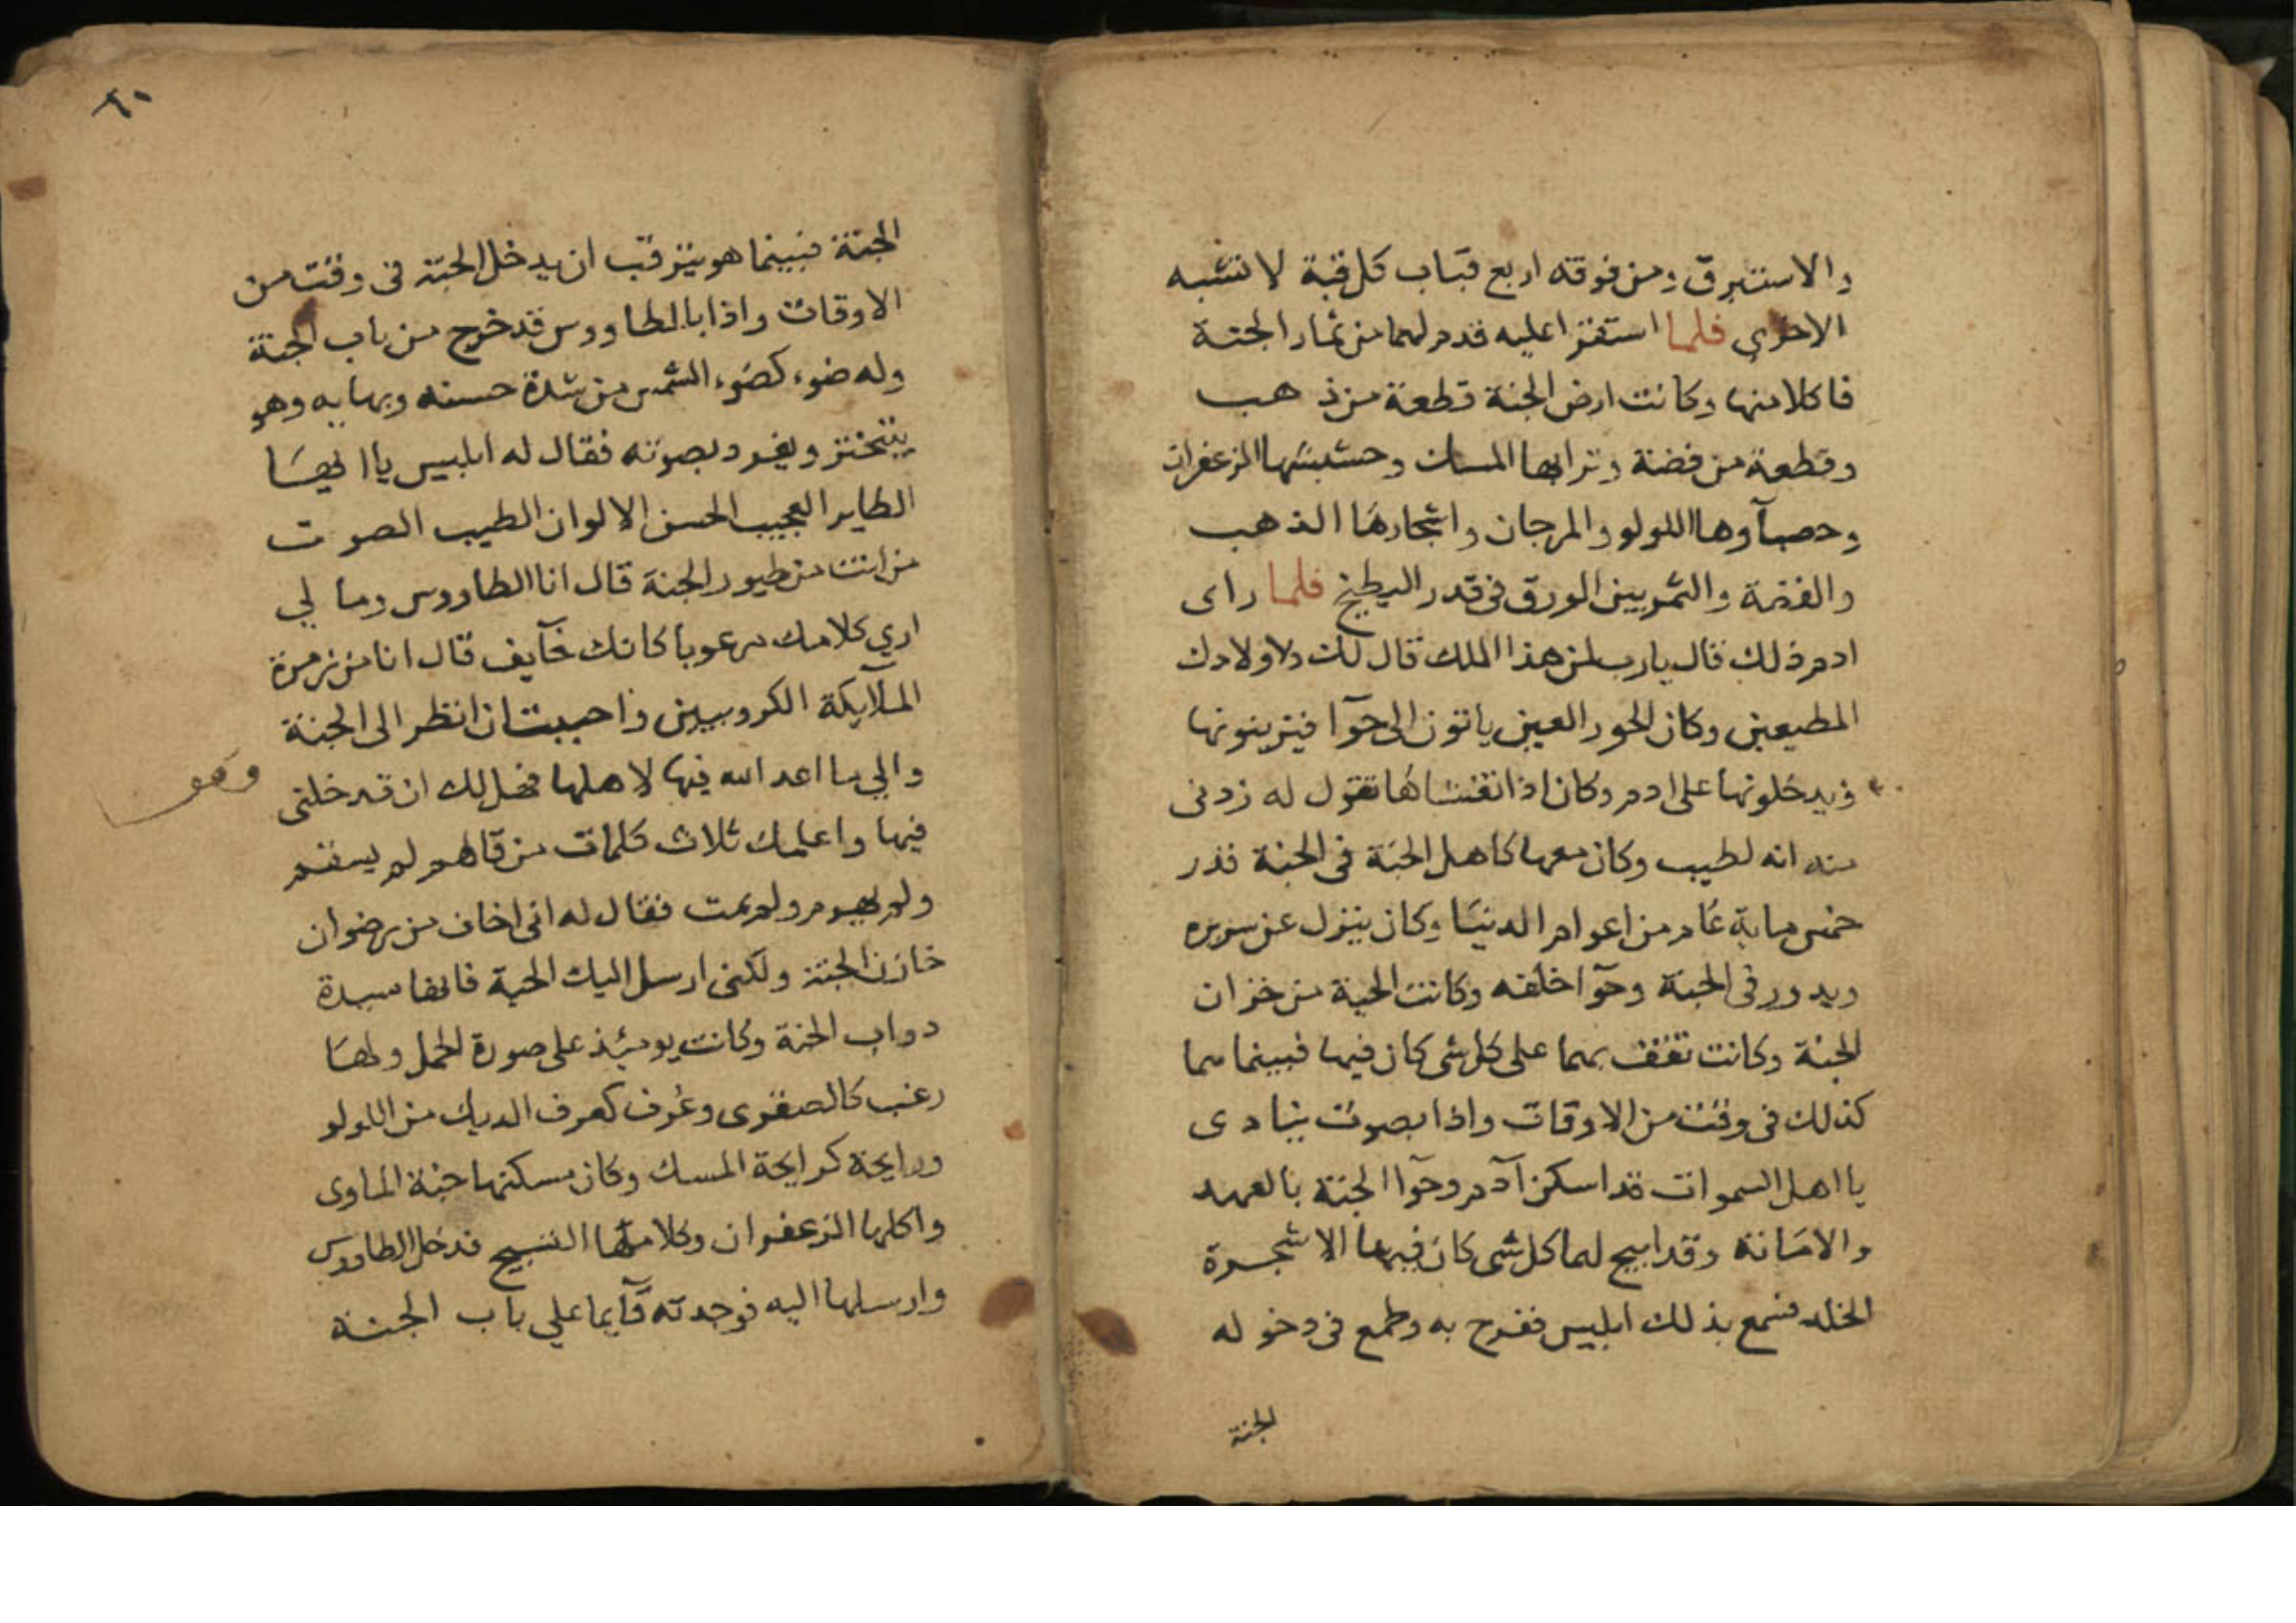 والاستبرق ومن فوقه اربع قباب كل قبة لا تشبه
الاخرى فلما استقرا عليه قدم لهما من ثمار الجنة
فاكلا منها وكانت ارض الجنة قطعة من ذهب
وقطعة من فضة وترابها المسك وحشيشها الزعفران
وحصآوها اللولو والمرجان واشجارها الذهب
والفضة والثمر بين الورق فى قدر البطيخ فلما راى
ادم ذلك قال يارب لمن هذا الملك قال لك ولاولادك
المطيعين وكان الحور العين ياتون الى حوآ فيزينونها
ويدخلونها على ادم وكان اذا تغشاها تقول له زدنى
منه انه لطيب وكان معها كاهل الجنة فى الجنة قدر
خمس ماية عام من اعوام الدنيا وكان ينزل عن سريره
ويدور فى الجنة وحوآ خلفه وكانت الحية من خزان
الجنة وكانت تقف بهما على كل شى كان فيها فبينما هما
كذلك فى وقت من الاوقات واذا بصوت ينادى
يا اهل السموات قد اسكن آدم وحوآ الجنة بالعهد
والامانة وقد ابيح لهما كل شى كان فيها الا شجرة
الخلد فسمع بذلك ابليس ففرح به وطمع فى دخوله
الجنة
٦٠
الجنة فبينما هو يترقب ان يدخل الجنة فى وقت من
الاوقات واذا بالطاووس قد خرج من باب الجنة
وله ضوء كضوء الشمس من شدة حسنه وبهايه وهو
يتبختر ويغرد بصوته فقال له ابليس يا ايها
الطاير العجيب الحسن الالوان الطيب الصوت
من انت من طيور الجنة قال انا الطاووس وما لي
اري كلامك مرعوبا كانك خآيف قال انا من زمرة
الملآيكة الكروبيين واحببت ان انظر الى الجنة
والي ما اعد الله فيها لاهلها فهل لك ان تدخلنى
وهو
فيها واعلمك ثلاث كلمات من قالهم لم يسقم
ولم يهرم ولم يمت فقال له انى اخاف من رضوان
خازن الجنة ولكنى ارسل اليك الحية فانها سيدة
دواب الجنة وكانت يومئذ على صورة الجمل ولها
زغب كالعبقرى وعُرف كعرف الديك من اللولو
ورايحة كرايحة المسك وكان مسكنها جنة الماوى
واكلها الزعفران وكلامها التسبيح فدخل الطاووس
وارسلها اليه فوجدته قآيما علي باب الجنة